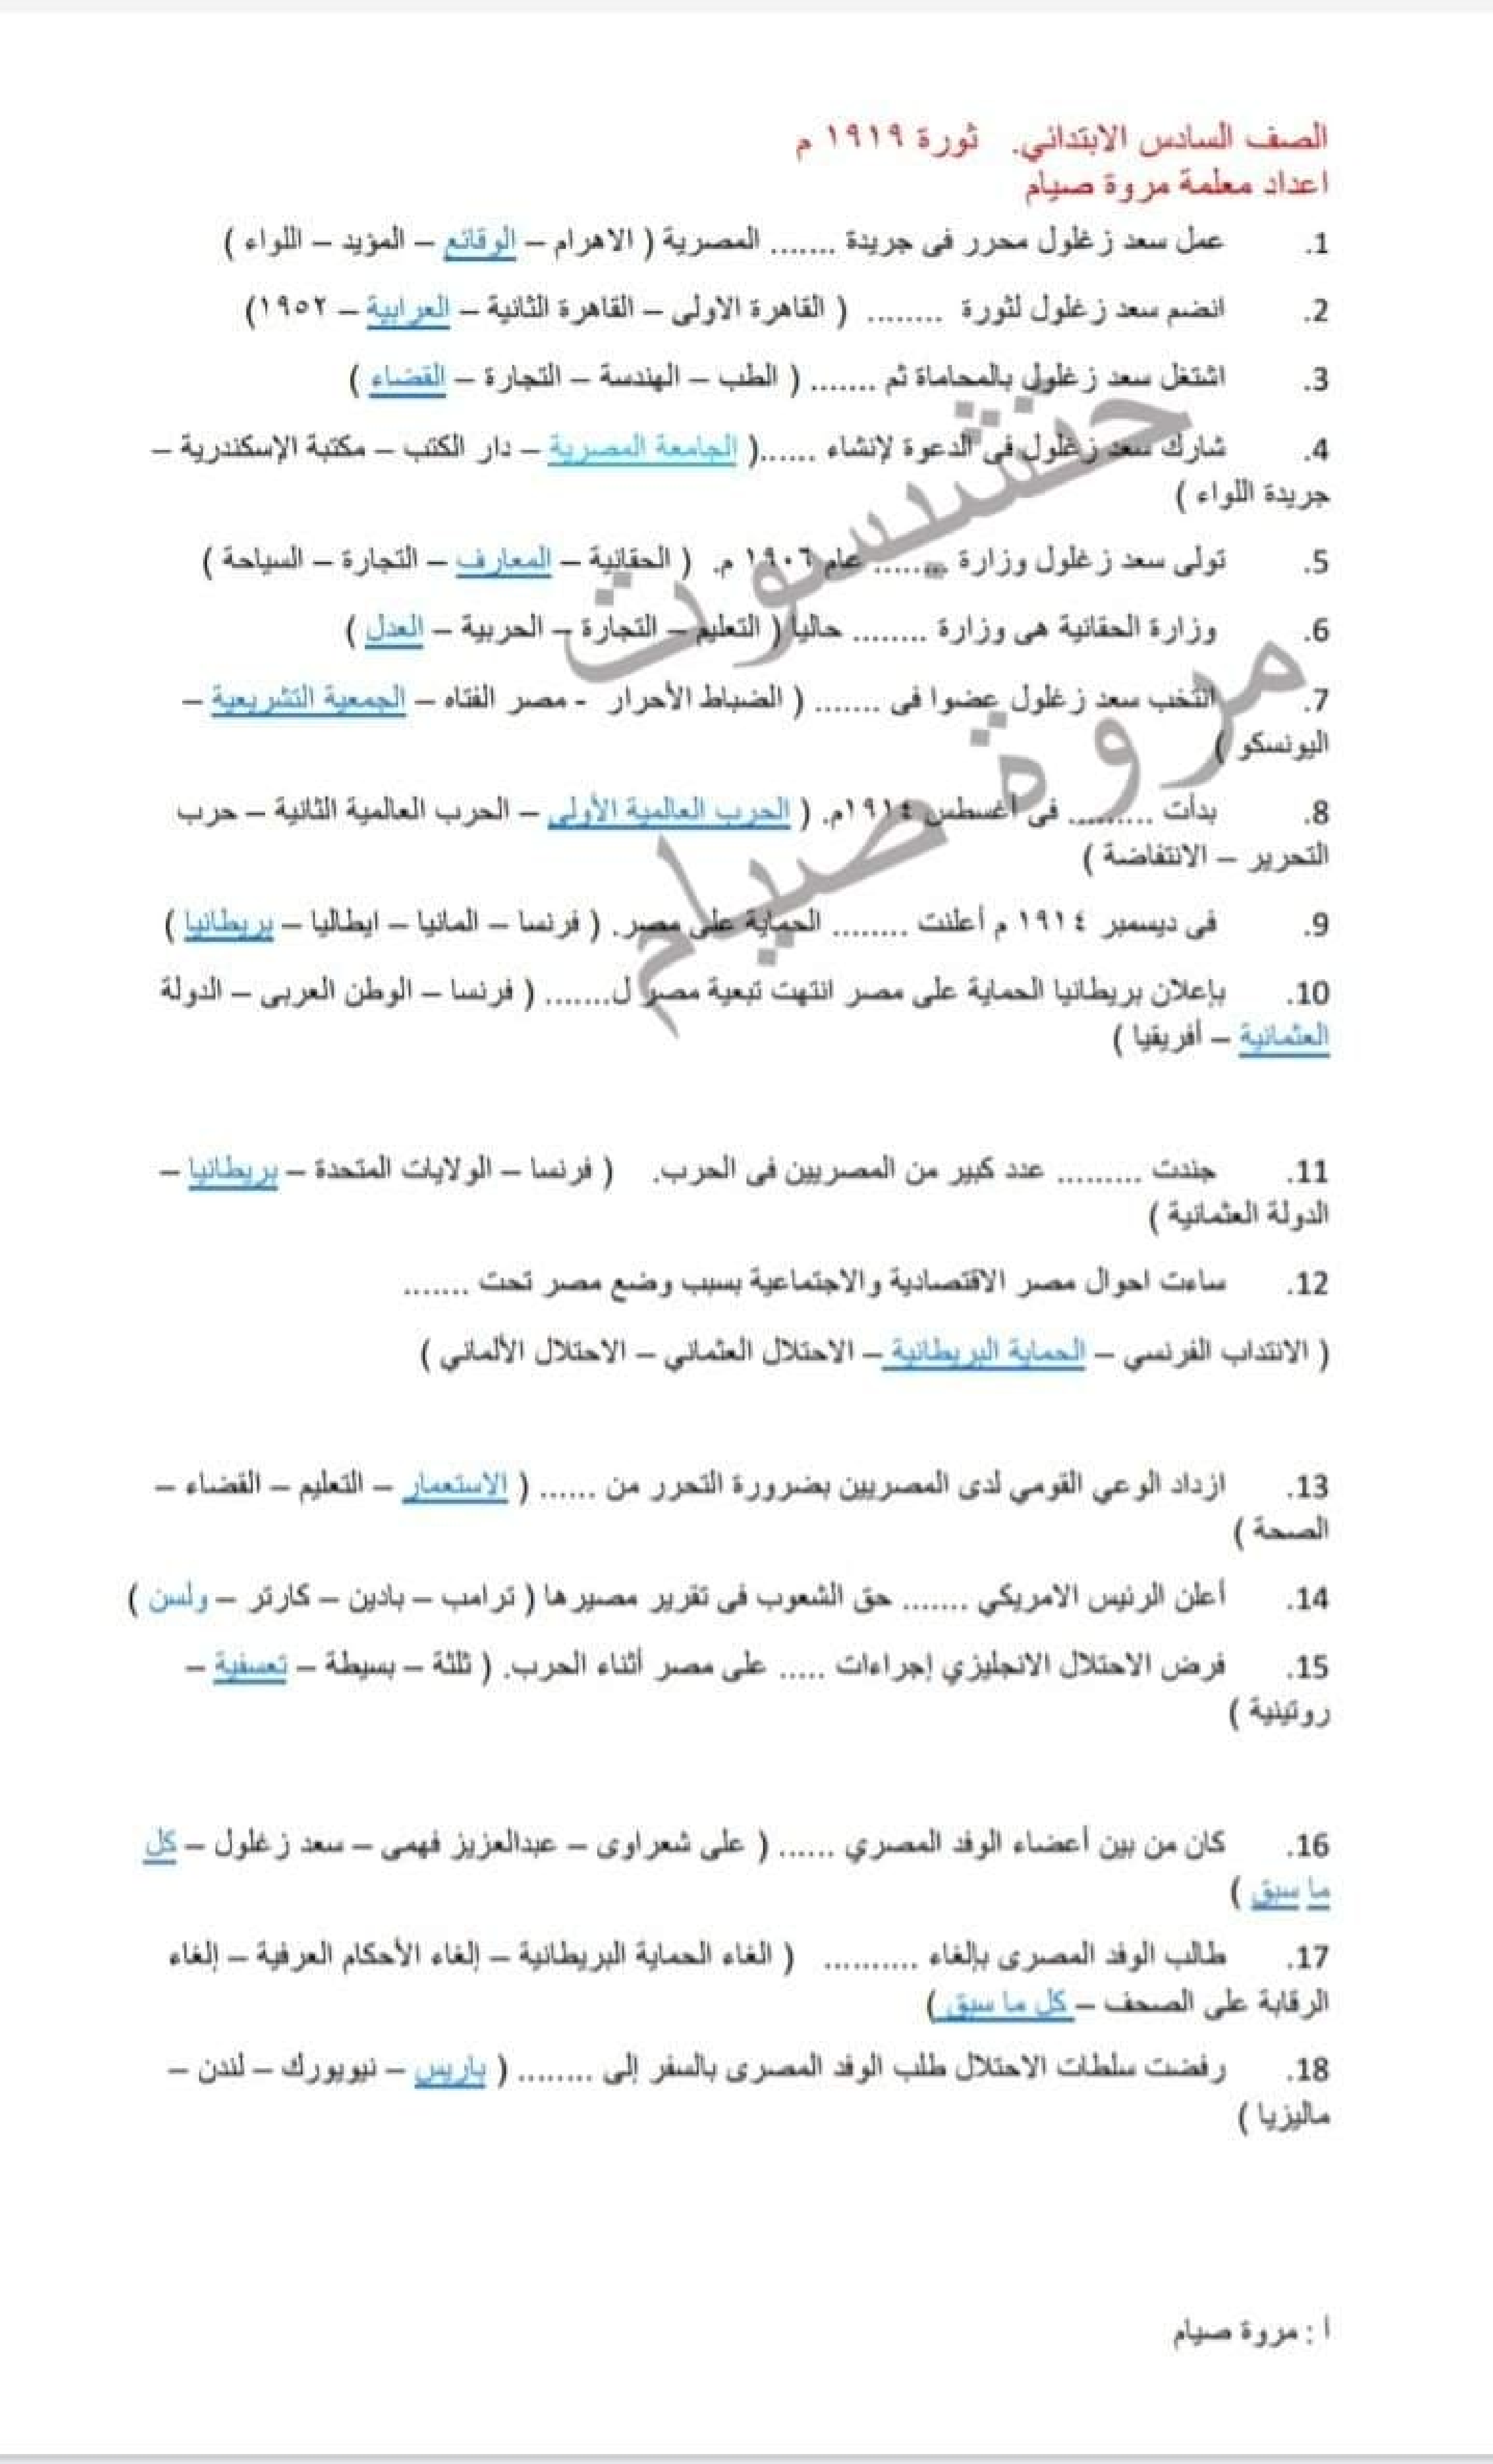 الصف السادس الابتدائي. ثورة ١٩١٩ م
اعداد معلمة مروة صيام
1. عمل سعد زغلول محرر فى جريدة ....... المصرية ( الاهرام – الوقائع – المؤيد – اللواء )
2. انضم سعد زغلول لثورة ........ ( القاهرة الاولى – القاهرة الثانية – العرابية – ١٩٥٢)
3. اشتغل سعد زغلول بالمحاماة ثم ....... ( الطب – الهندسة – التجارة – القضاء )
4. شارك سعد زغلول فى الدعوة لإنشاء ......( الجامعة المصرية – دار الكتب – مكتبة الإسكندرية –
جريدة اللواء )
5. تولى سعد زغلول وزارة ........ عام ١٩٠٦ م. ( الحقانية – المعارف – التجارة – السياحة )
6. وزارة الحقانية هى وزارة ........ حاليا ( التعليم – التجارة – الحربية – العدل )
7. انتخب سعد زغلول عضوا فى ....... ( الضباط الأحرار - مصر الفتاه – الجمعية التشريعية –
اليونسكو )
8. بدأت ......... فى أغسطس ١٩١٤م. ( الحرب العالمية الأولى – الحرب العالمية الثانية – حرب
التحرير – الانتفاضة )
9. فى ديسمبر ١٩١٤ م أعلنت ........ الحماية على مصر. ( فرنسا – المانيا – ايطاليا – بريطانيا )
10. بإعلان بريطانيا الحماية على مصر انتهت تبعية مصر ل....... ( فرنسا – الوطن العربى – الدولة
العثمانية – أفريقيا )
11. جندت ......... عدد كبير من المصريين فى الحرب. ( فرنسا – الولايات المتحدة – بريطانيا –
الدولة العثمانية )
12. ساءت احوال مصر الاقتصادية والاجتماعية بسبب وضع مصر تحت .......
( الانتداب الفرنسي – الحماية البريطانية – الاحتلال العثماني – الاحتلال الألماني )
13. ازداد الوعي القومي لدى المصريين بضرورة التحرر من ...... ( الاستعمار – التعليم – القضاء –
الصحة )
14. أعلن الرئيس الامريكي ....... حق الشعوب فى تقرير مصيرها ( ترامب – بادين – كارتر – ولسن )
15. فرض الاحتلال الانجليزي إجراءات ..... على مصر أثناء الحرب. ( ثلثة – بسيطة – تعسفية –
روتينية )
16. كان من بين أعضاء الوفد المصري ...... ( على شعراوى – عبدالعزيز فهمى – سعد زغلول – كل
ما سبق )
17. طالب الوفد المصرى بإلغاء .......... ( الغاء الحماية البريطانية – إلغاء الأحكام العرفية – إلغاء
الرقابة على الصحف – كل ما سبق )
18. رفضت سلطات الاحتلال طلب الوفد المصرى بالسفر إلى ......... ( باريس – نيويورك – لندن –
ماليزيا )
أ : مروة صيام
حتشبسوت
مروة صيام